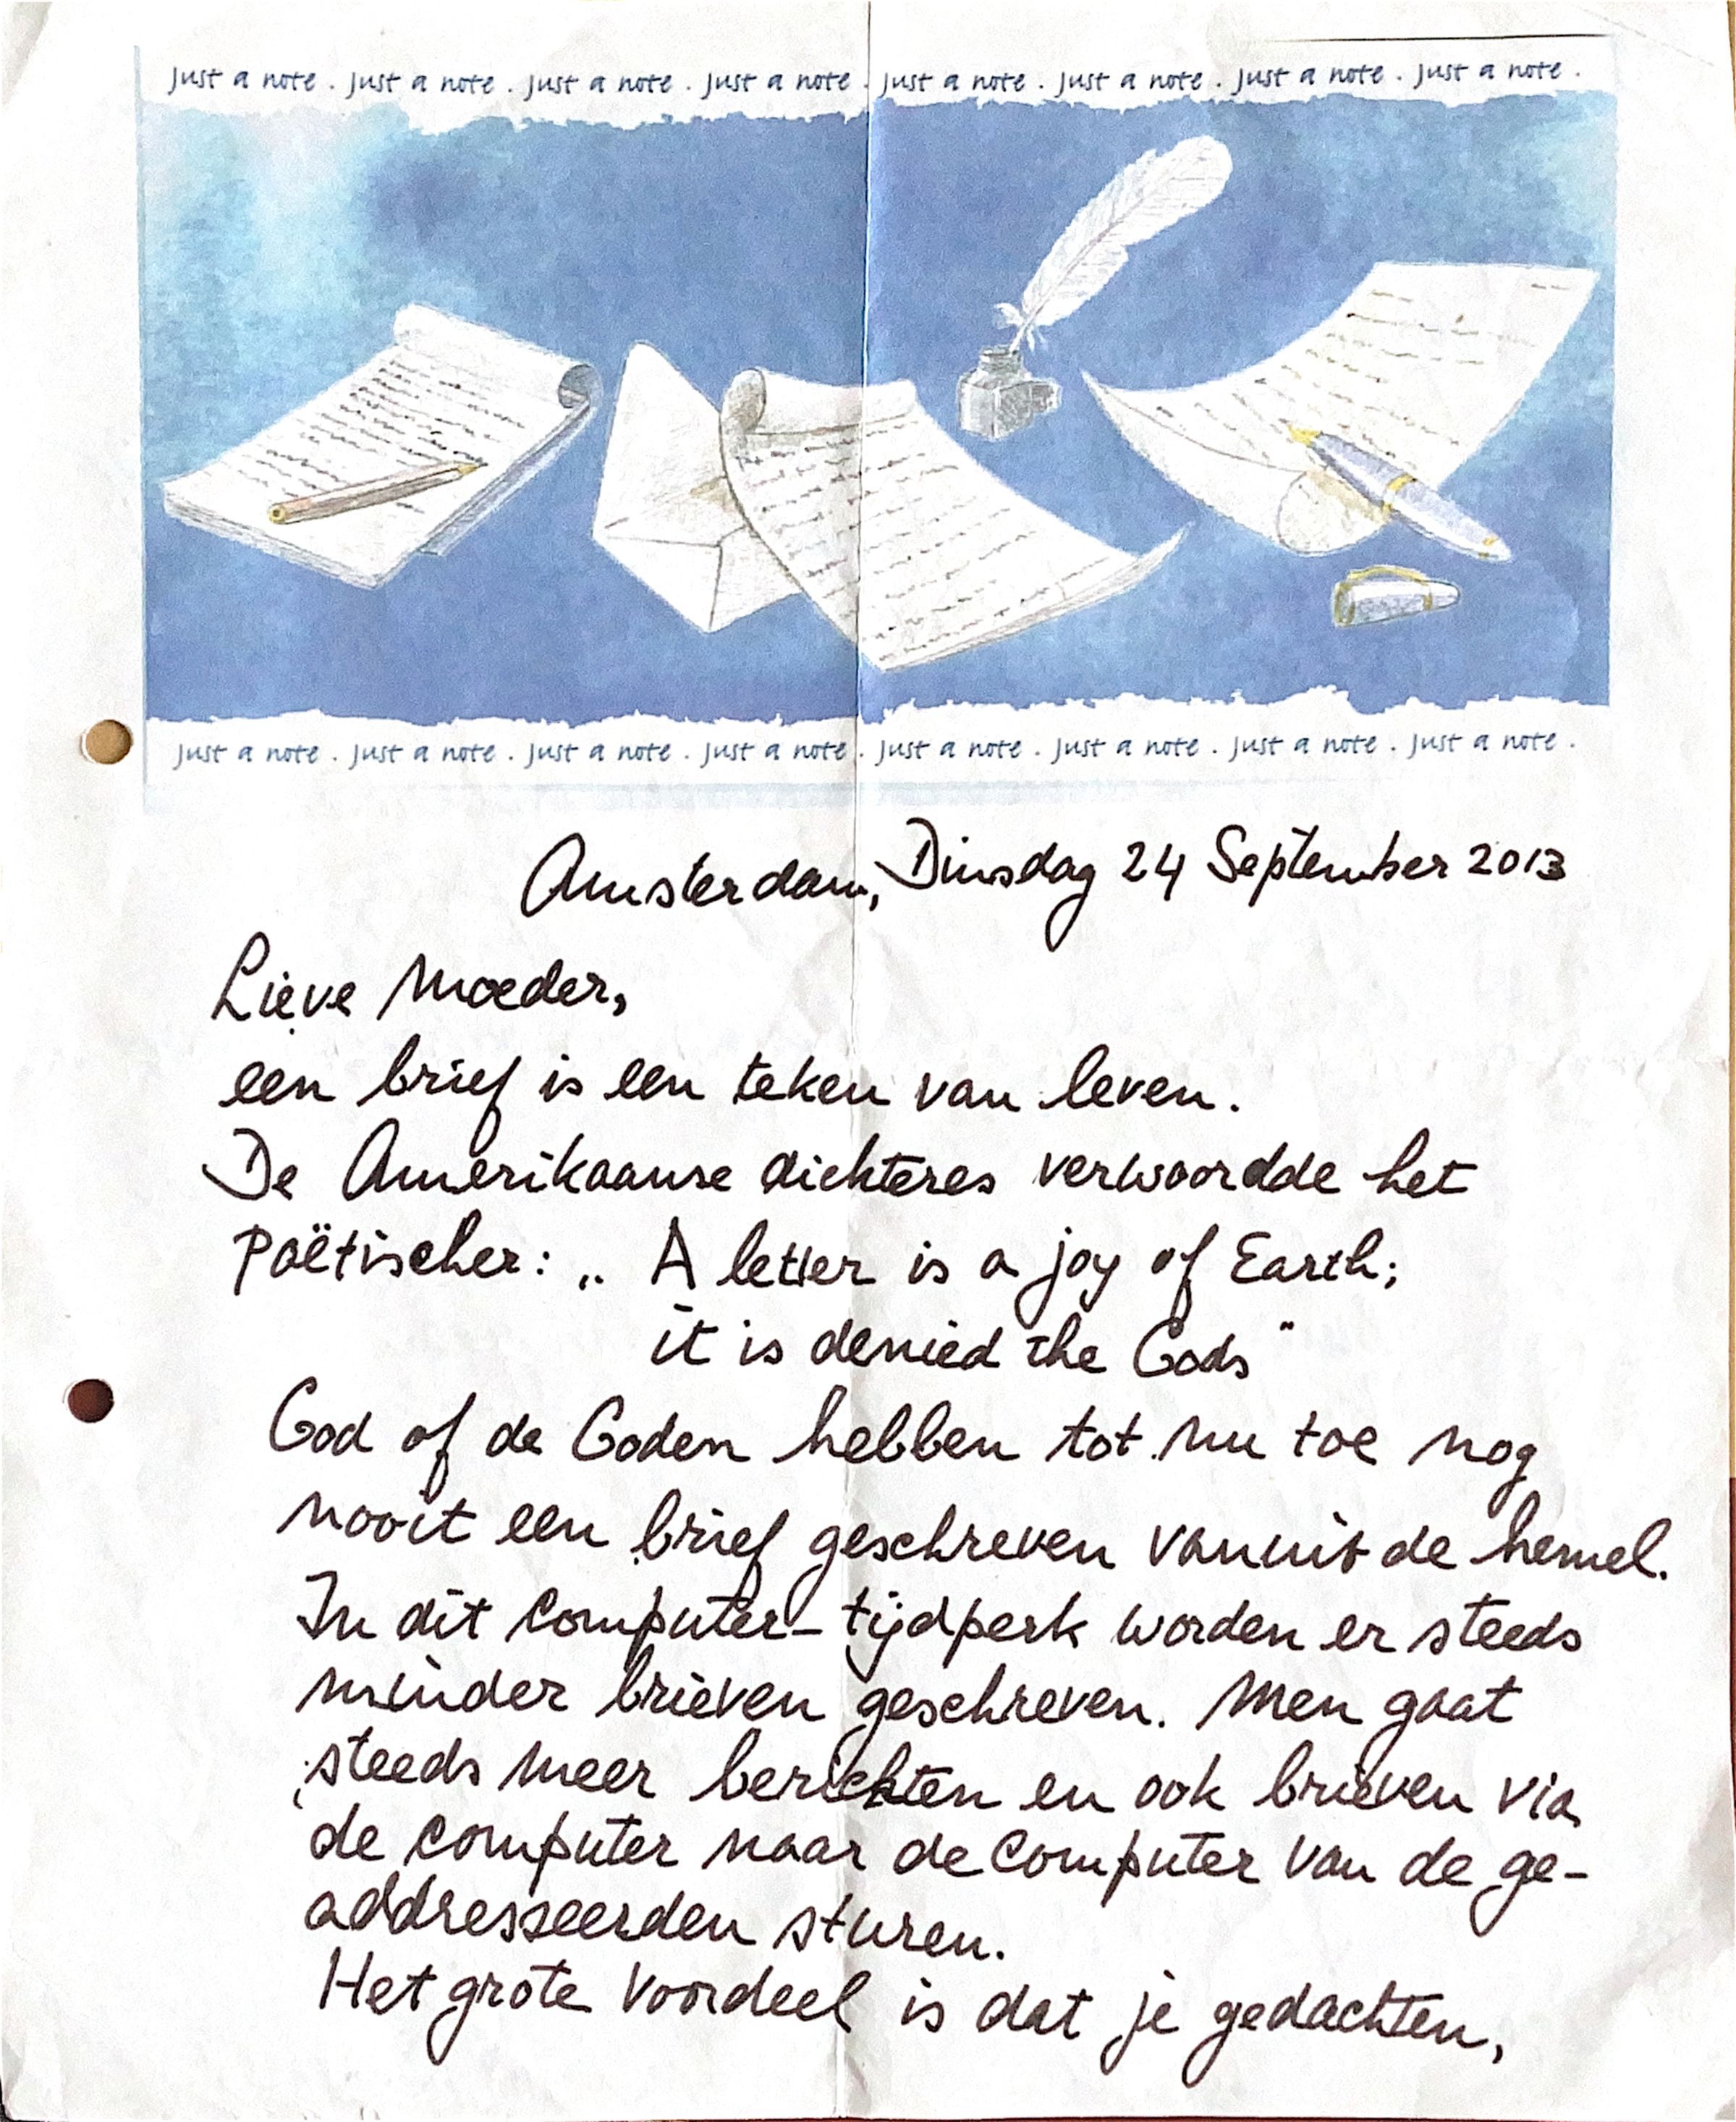 Just a note . Just a note . Just a note . Just a note . Just a note . Just a note . Just a note . Just a note .
Just a note . Just a note . Just a note . Just a note . Just a note . Just a note . Just a note . Just a note .
Amsterdam, Dinsdag 24 September 2013
Lieve Moeder,
een brief is een teken van leven.
De Amerikaanse dichteres verwoordde het
Poëtischer: „ A letter is a joy of Earth;
it is denied the Gods"
God of de Goden hebben tot nu toe nog
nooit een brief geschreven vanuit de hemel.
In dit computer-tijdperk worden er steeds
minder brieven geschreven. Men gaat
steeds meer berichten en ook brieven via
de computer naar de computer van de ge-
addresseerden sturen.
Het grote voordeel is dat je gedachten,